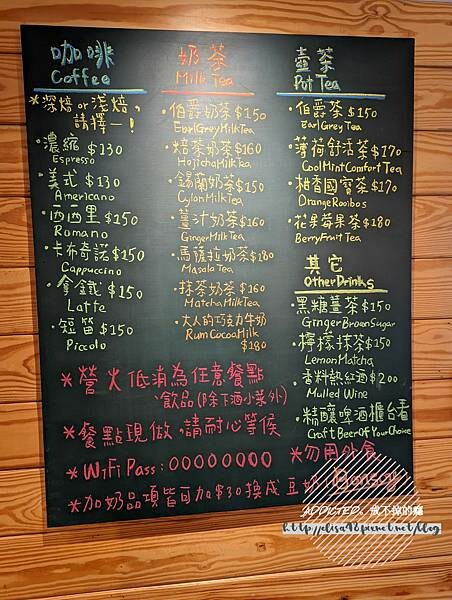 咖啡
Coffee
*深焙 or 淺焙,
請擇一!
·濃縮 $130
Espresso
·美式 $130
Americano
·西西里 $150
Romano
·卡布奇諾 $150
Cappuccino
·拿鐵 $150
Latte
·短笛 $150
Piccolo
奶茶
Milk Tea
·伯爵奶茶 $150
Earl Grey Milk Tea
·焙茶奶茶 $160
Hojicha Milk Tea
·錫蘭奶茶 $150
Cylon Milk Tea
·薑汁奶茶 $160
Ginger Milk Tea
·馬薩拉奶茶 $180
Masala Tea
·抹茶奶茶 $160
Matcha Milk Tea
·大人的巧克力牛奶
Rum Cocoa Milk
$180
壺茶
Pot Tea
·伯爵茶 $150
Earl Grey Tea
·薄荷舒活茶 $170
Cool Mint Comfort Tea
·柑香國寶茶 $170
Orange Rooibos
·花果莓果茶 $180
Berry Fruit Tea
其它
Other Drinks
·黑糖薑茶 $150
Ginger Brown Sugar
·檸檬抹茶 $150
Lemon Matcha
·香料熱紅酒 $200
Mulled Wine
·精釀啤酒櫃台看
Craft Beer Of Your Choice
*營火低消為任意餐點
、飲品(除下酒小菜外)
*餐點現做,請耐心等候
*WiFi Pass: 00000000
*勿用外食
*加奶品項皆可加$30換成豆奶 Bonsoy
ADDICTED。戒不掉的癮
http://elisa98.pixnet.net/blog